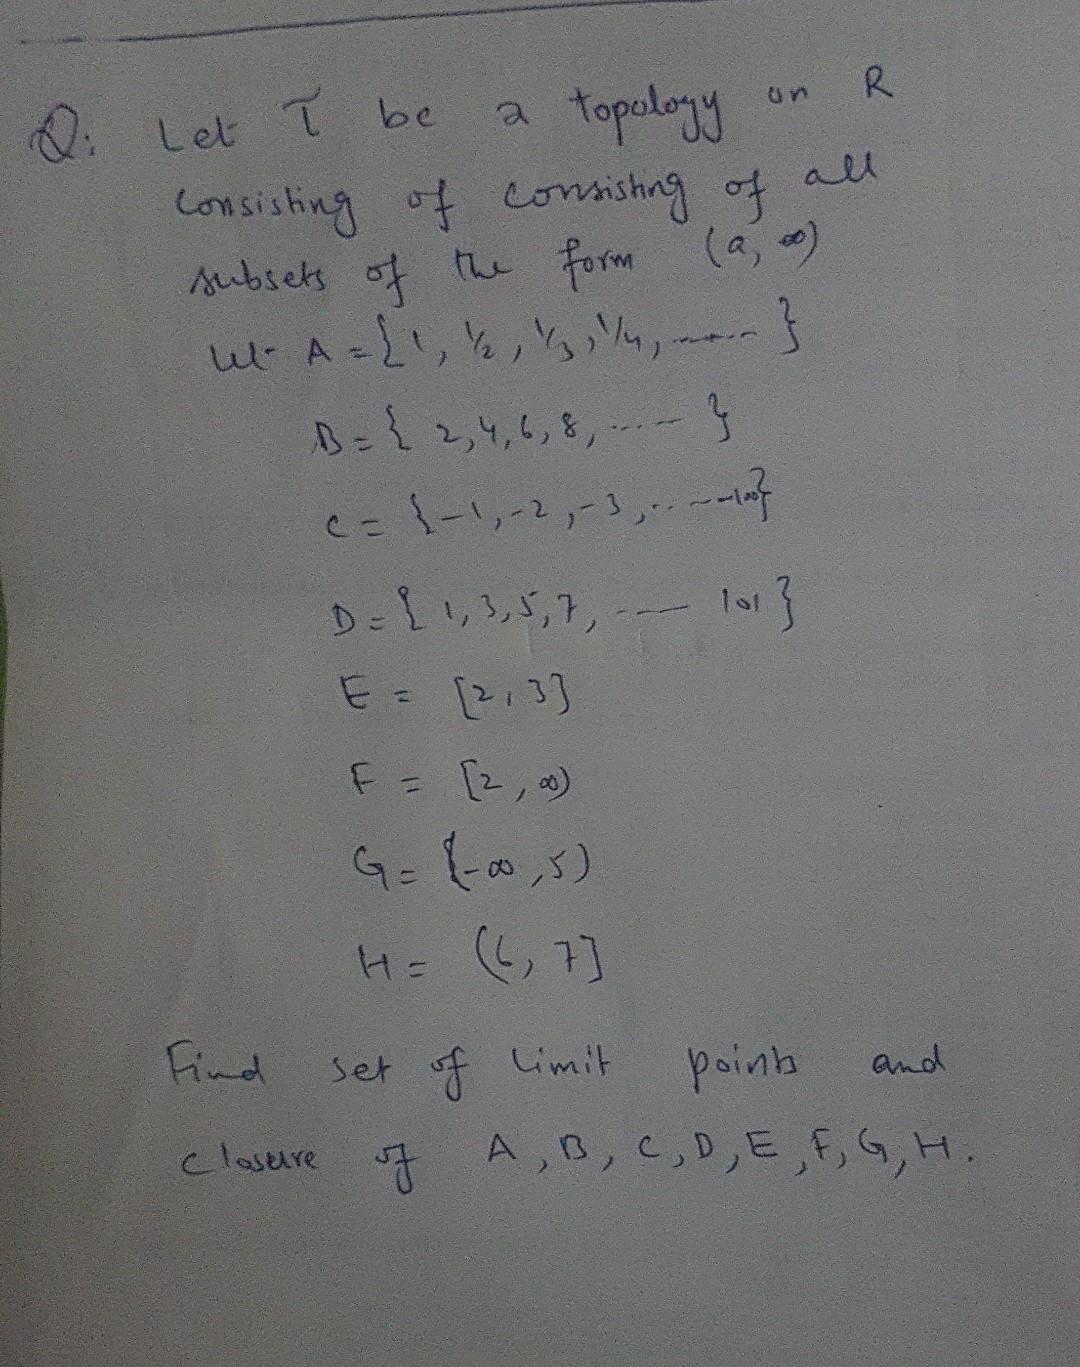 Q: Let T be a topology on R
consisting of consisting of all
subsets of the form (a, ∞)
let A = {1, 1/2, 1/3, 1/4, ...... }
B = { 2,4,6,8, ..... }
C = {-1, -2, -3, .. -- -100}
D = { 1, 3, 5, 7, ---- 101 }
E = [2, 3]
F = [2, ∞)
G = (-∞, 5)
H = (6, 7]
Find set of limit points and
closure of A, B, C, D, E, F, G, H.